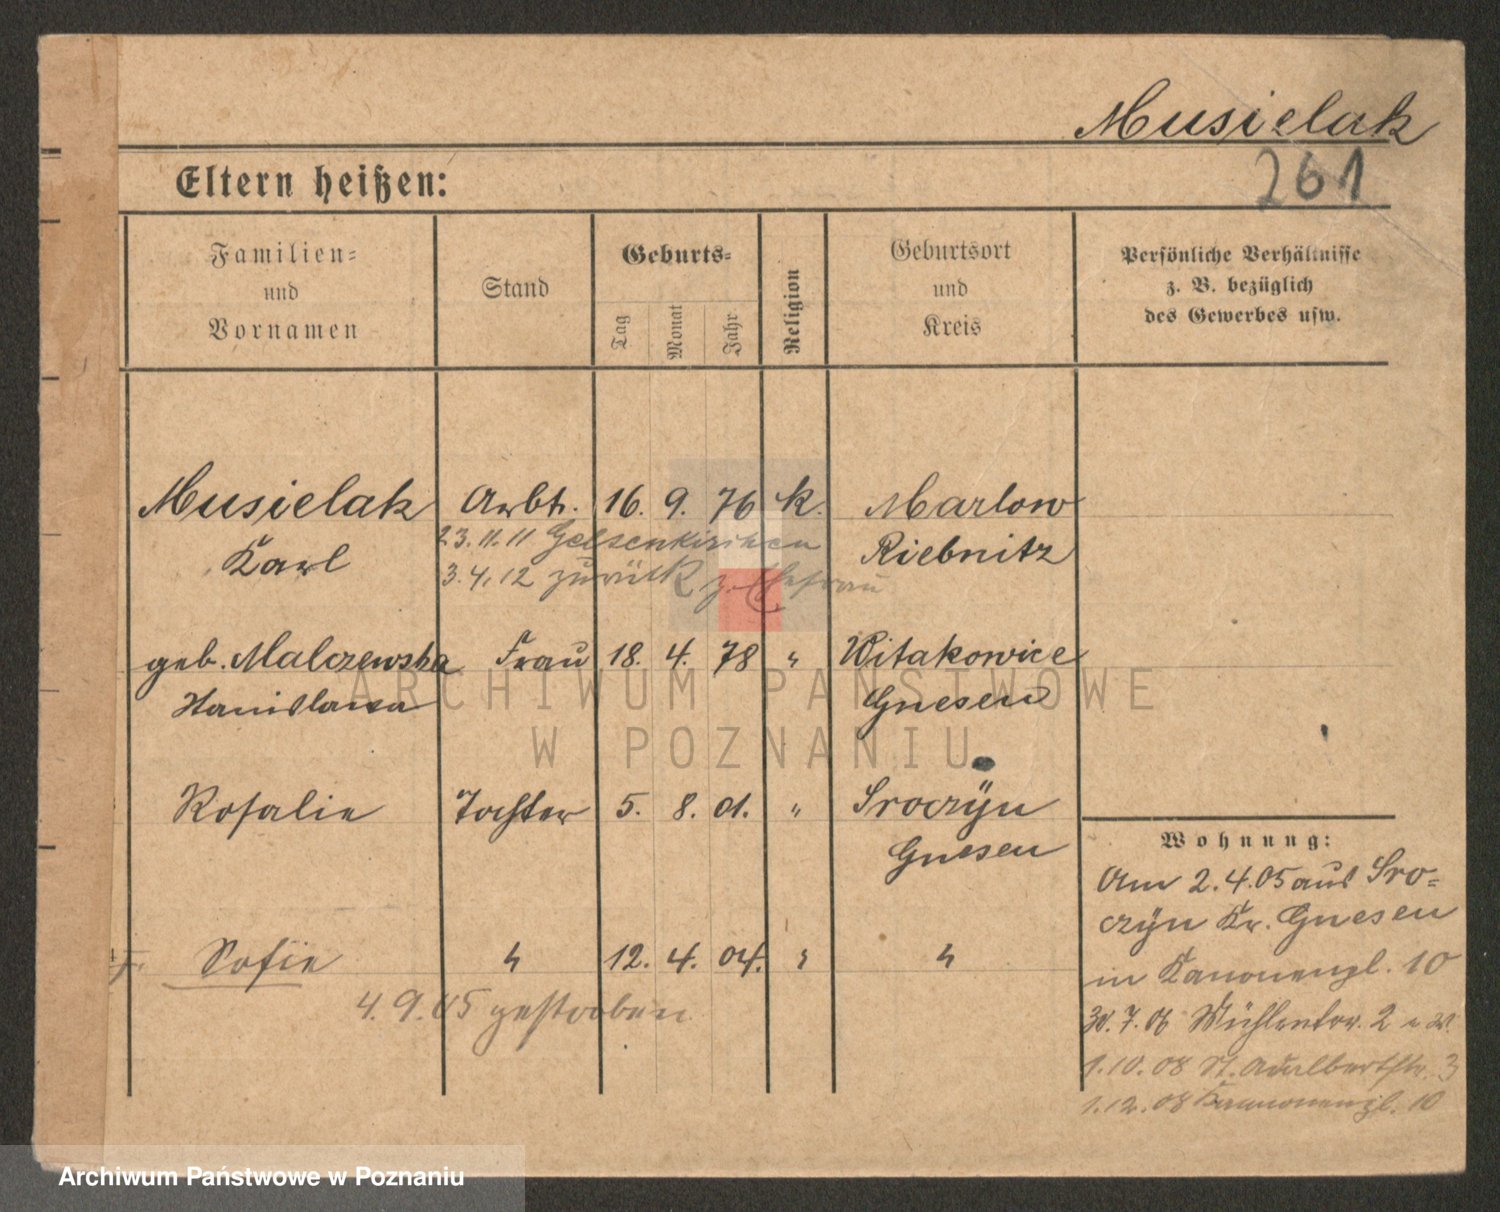 Musielak
261
Eltern heißen:
Familien=
und
Vornamen
Stand
Geburts=
Tag
Monat
Jahr
Religion
Geburtsort
und
Kreis
Persönliche Verhältnisse
z. B. bezüglich
des Gewerbes usw.
Musielak Arbt. 16. 9. 76 k. Marlow
Karl Riebnitz
23.11.11 Gelsenkirchen
3.4.12 zurück z. Ehefrau
geb. Malczewska Frau 18. 4. 78 " Witakowice
Stanislawa Gnesen
Rosalie Tochter 5. 8. 01. " Sroczÿn
Gnesen
Sofie " 12. 4. 04. " "
4.9.05 gestorben
Wohnung:
Am 2.4.05 aus Sro=
czÿn Kr. Gnesen
in Kanonenpl. 10
30.7.06 Mühlentor. 2
1.10.08 St. Adalbertstr. 3
1.12.08 Kanonenpl. 10
ARCHIWUM PAŃSTWOWE
W POZNANIU
Archiwum Państwowe w Poznaniu